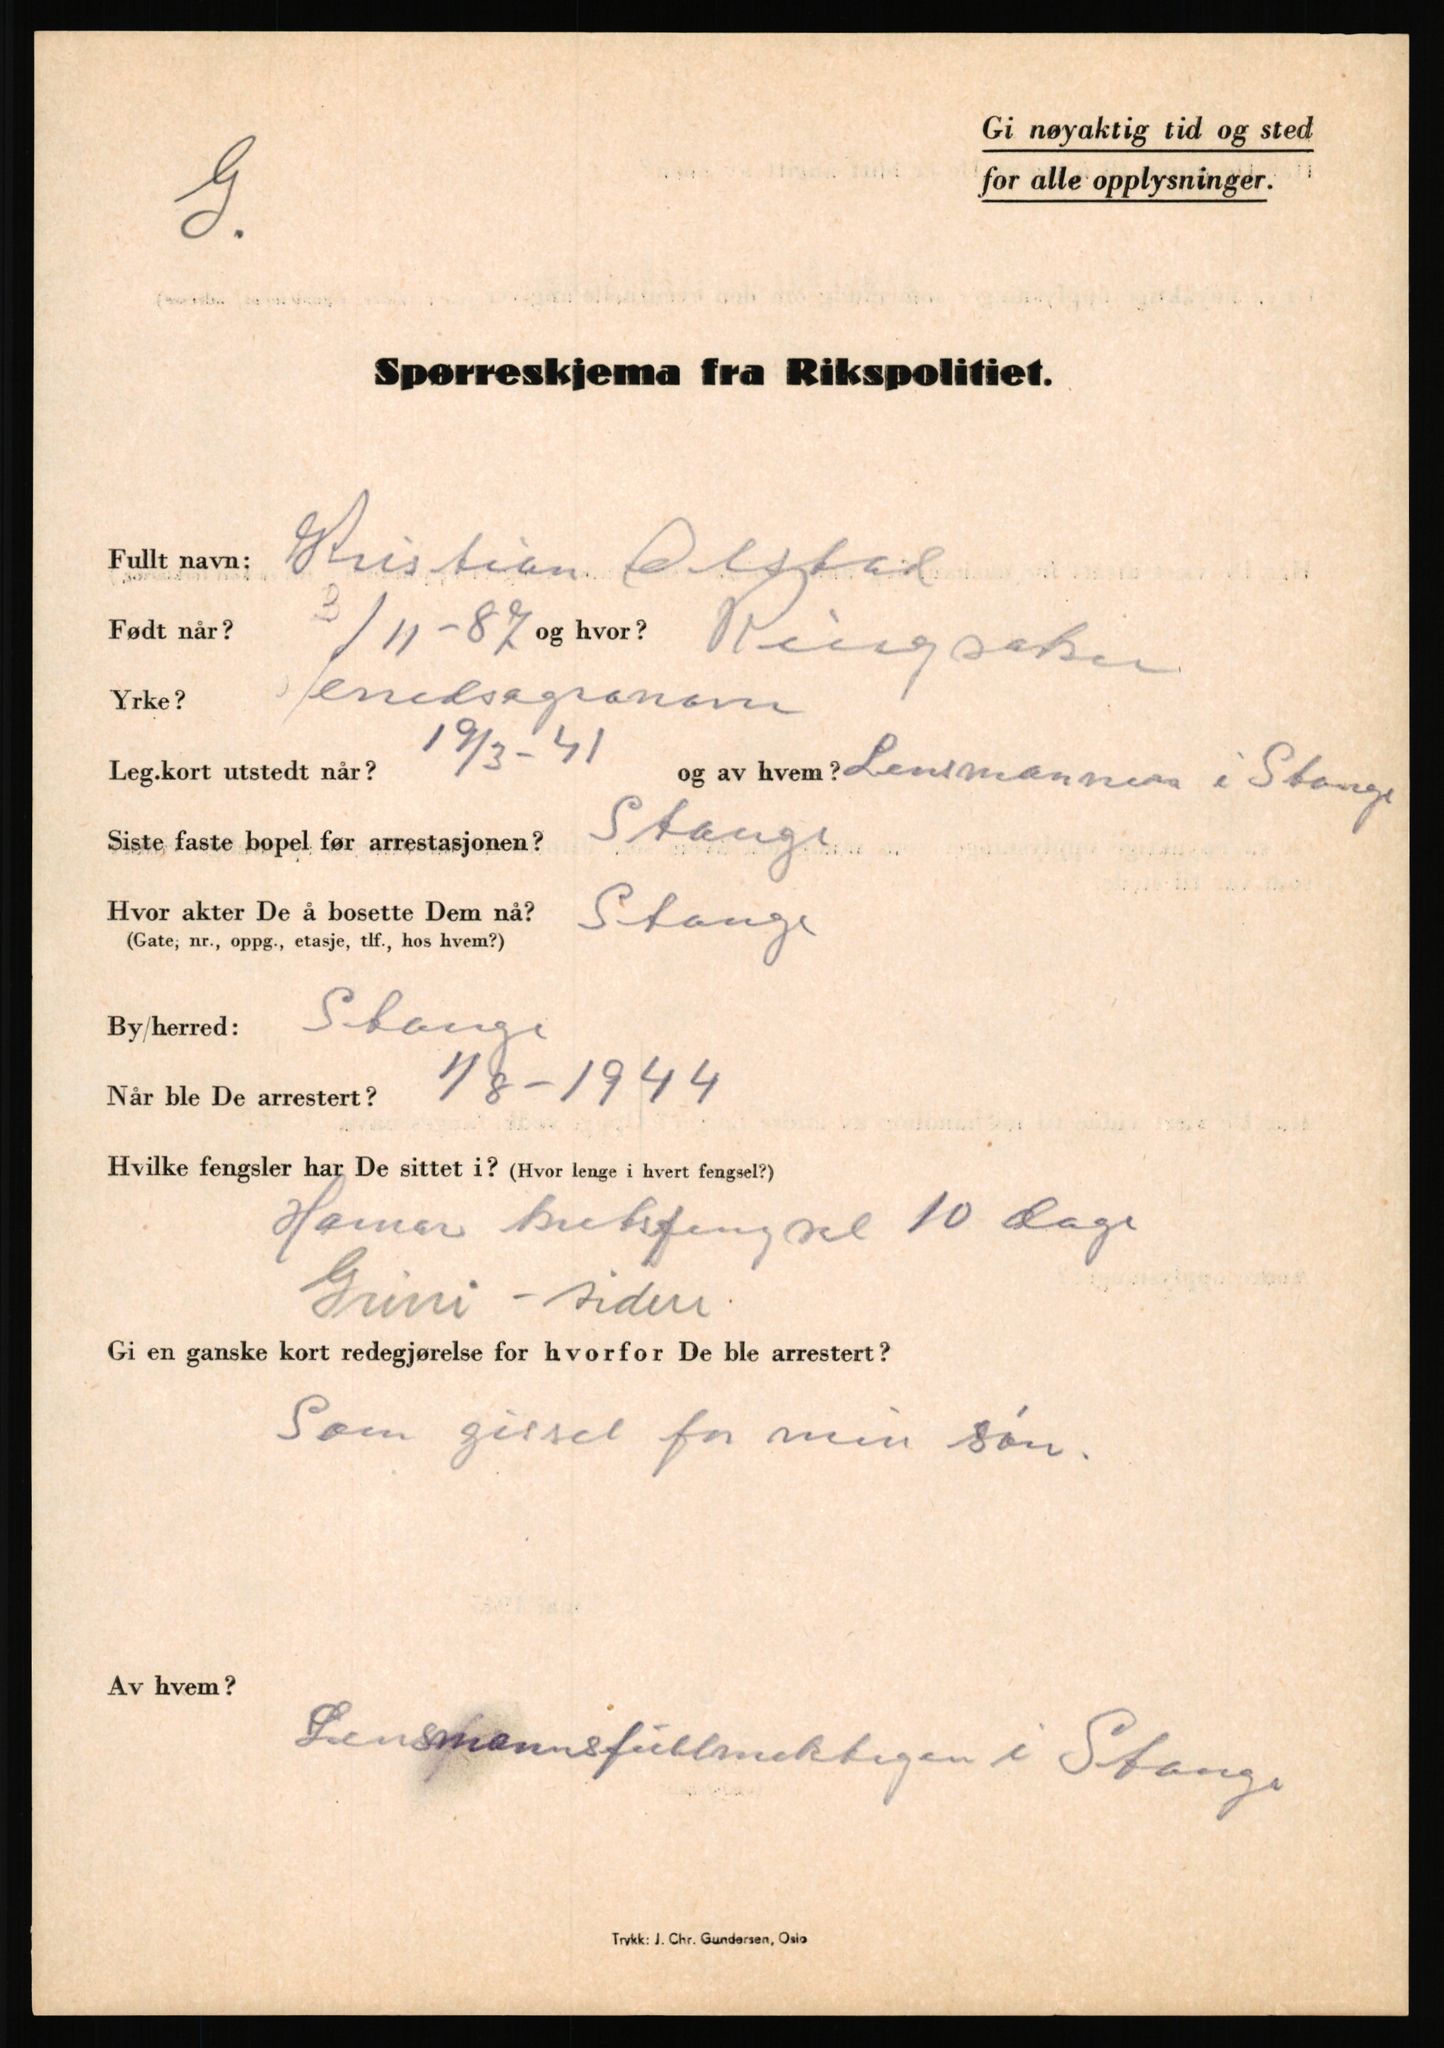 Gi nøyaktig tid og sted
for alle opplysninger.
G.
Spørreskjema fra Rikspolitiet.
Fullt navn: Kristian Alstad
Født når? 3/11-87 og hvor? Ringsaker
Yrke? Herredsagronom
Leg.kort utstedt når? 19/3-41 og av hvem? Lensmannen i Stange
Siste faste bopel før arrestasjonen? Stange
Hvor akter De å bosette Dem nå? Stange
(Gate, nr., oppg., etasje, tlf., hos hvem?)
By/herred: Stange
Når ble De arrestert? 1/8-1944
Hvilke fengsler har De sittet i? (Hvor lenge i hvert fengsel?)
Hamar kretsfengsel 10 dage
Grini - siden.
Gi en ganske kort redegjørelse for hvorfor De ble arrestert?
Som gissel for min søn.
Av hvem?
Lensmannsfullmektigen i Stange
Trykk: J. Chr. Gundersen, Oslo